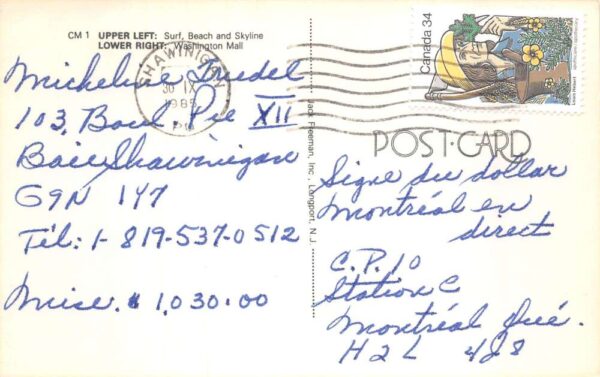 CM 1 UPPER LEFT: Surf, Beach and Skyline
LOWER RIGHT: Washington Mall
SHAWINIGAN
30 IX
1985
PM
Canada 34
Micheline Trudel
103, Boul Pie XII
Baie Shawinigan
G9N 1Y7
Tél: 1-819-537-0512
Mise. $ 1,030.00
Jack Freeman, Inc., Longport, N. J.
POST-CARD
Signe du dollar
Montréal en
direct
C.P. 10
Station C
Montréal Qué.
H2L 4J8